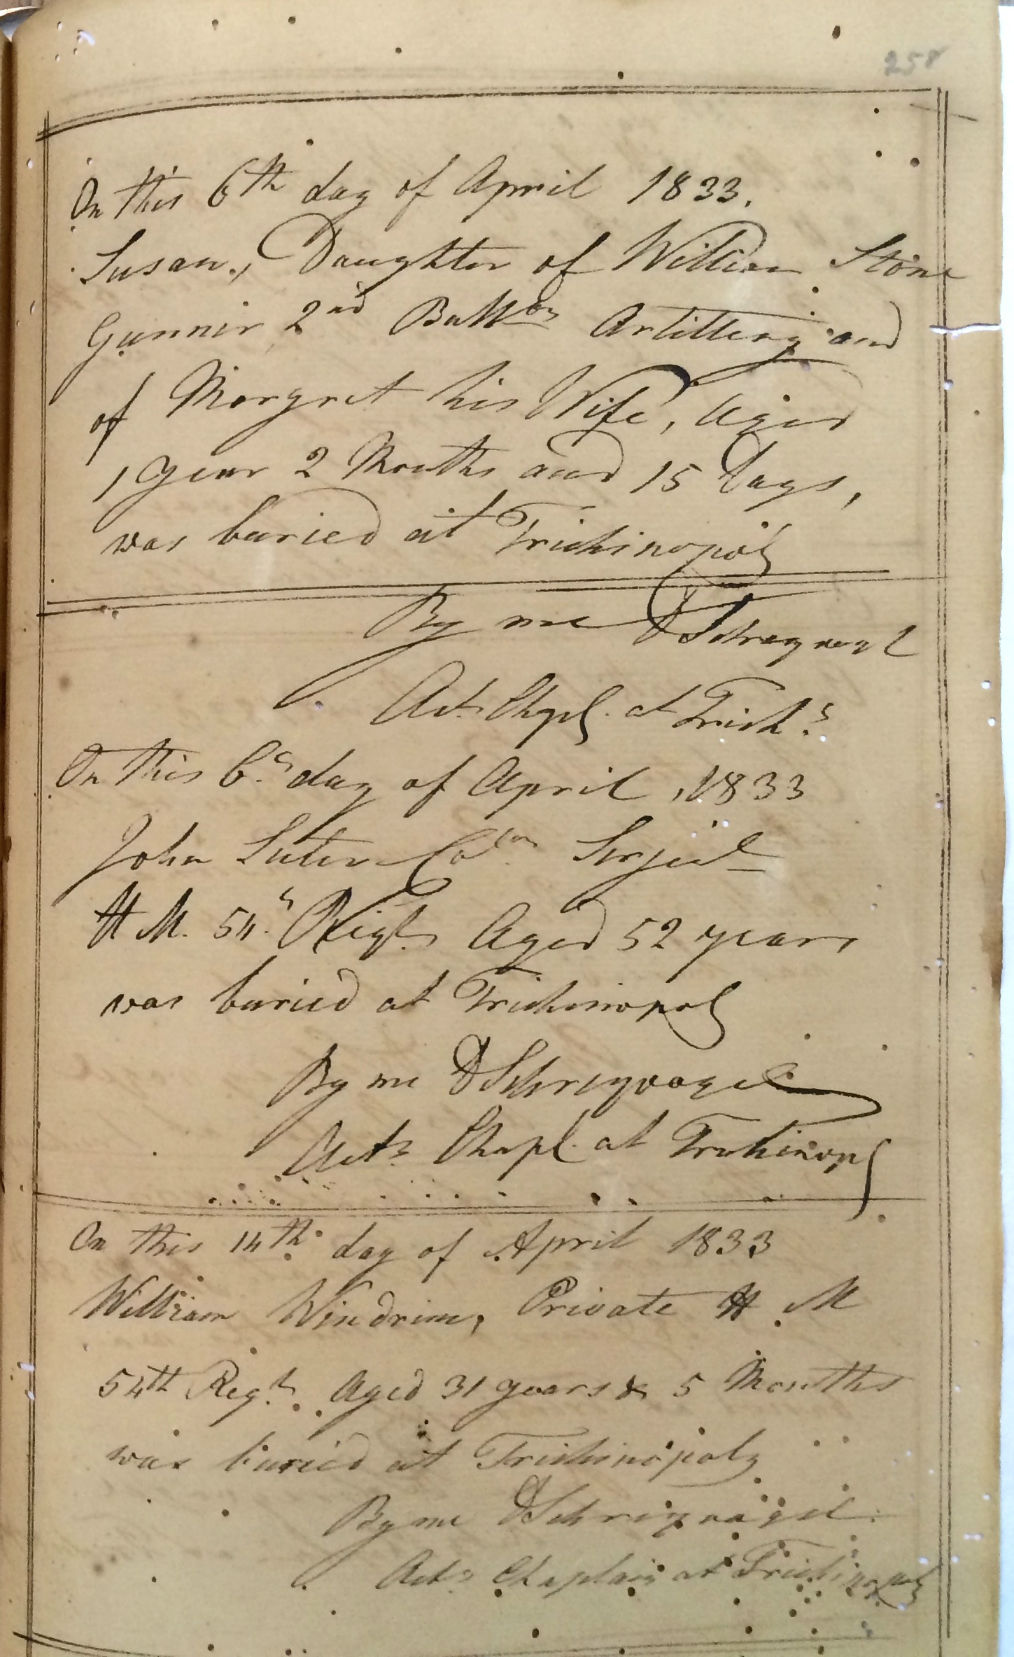 258
On this 6th day of April 1833.
Susan, Daughter of William Stone
Gunnir 2nd Battn Artillery and
of Margret his Wife, Aged
1 year 2 Months and 15 Days,
was buried at Trichinopoly
By me D Schreyvogel
Actg Chapl. at Trich.
On this 6th day of April, 1833
John Serjeat
H M. 54th Regt. Aged 52 years
was buried at Trichinopoly
By me D Schreyvogel
Actg Chapl. at Trichinopy
On this 14th day of April 1833
William Windrim, Private H M
54th Regt. Aged 31 years & 5 Months
was buried at Trichinopoly
By me D Schreyvogel.
Actg Chaplain at Trichinopoly